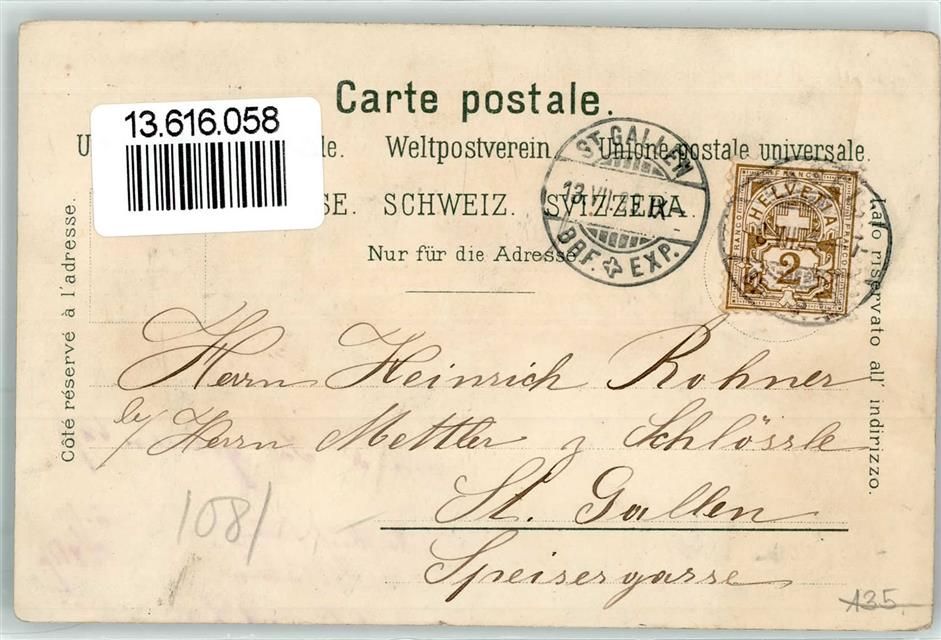 Carte postale.
13.616.058
U le. Weltpostverein Unione postale universale.
SE. SCHWEIZ. SVIZZERA.
Nur für die Adresse
ST. GALLEN
13.VII. IX
BRF. EXP.
HELVETIA
FRANCO
2
Côté réservé à l'adresse.
Lato riservato all' indirizzo.
Herrn Heinrich Rohner
by Herrn Mettler z Schlössle
St. Gallen
Speisergasse
1081
135.